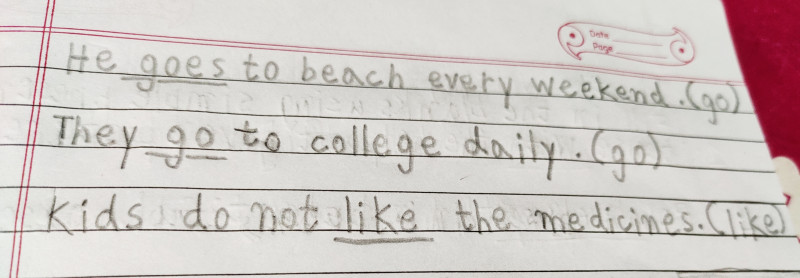 Date
Page
He goes to beach every weekend. (go)
They go to college daily. (go)
Kids do not like the medicines. (like)